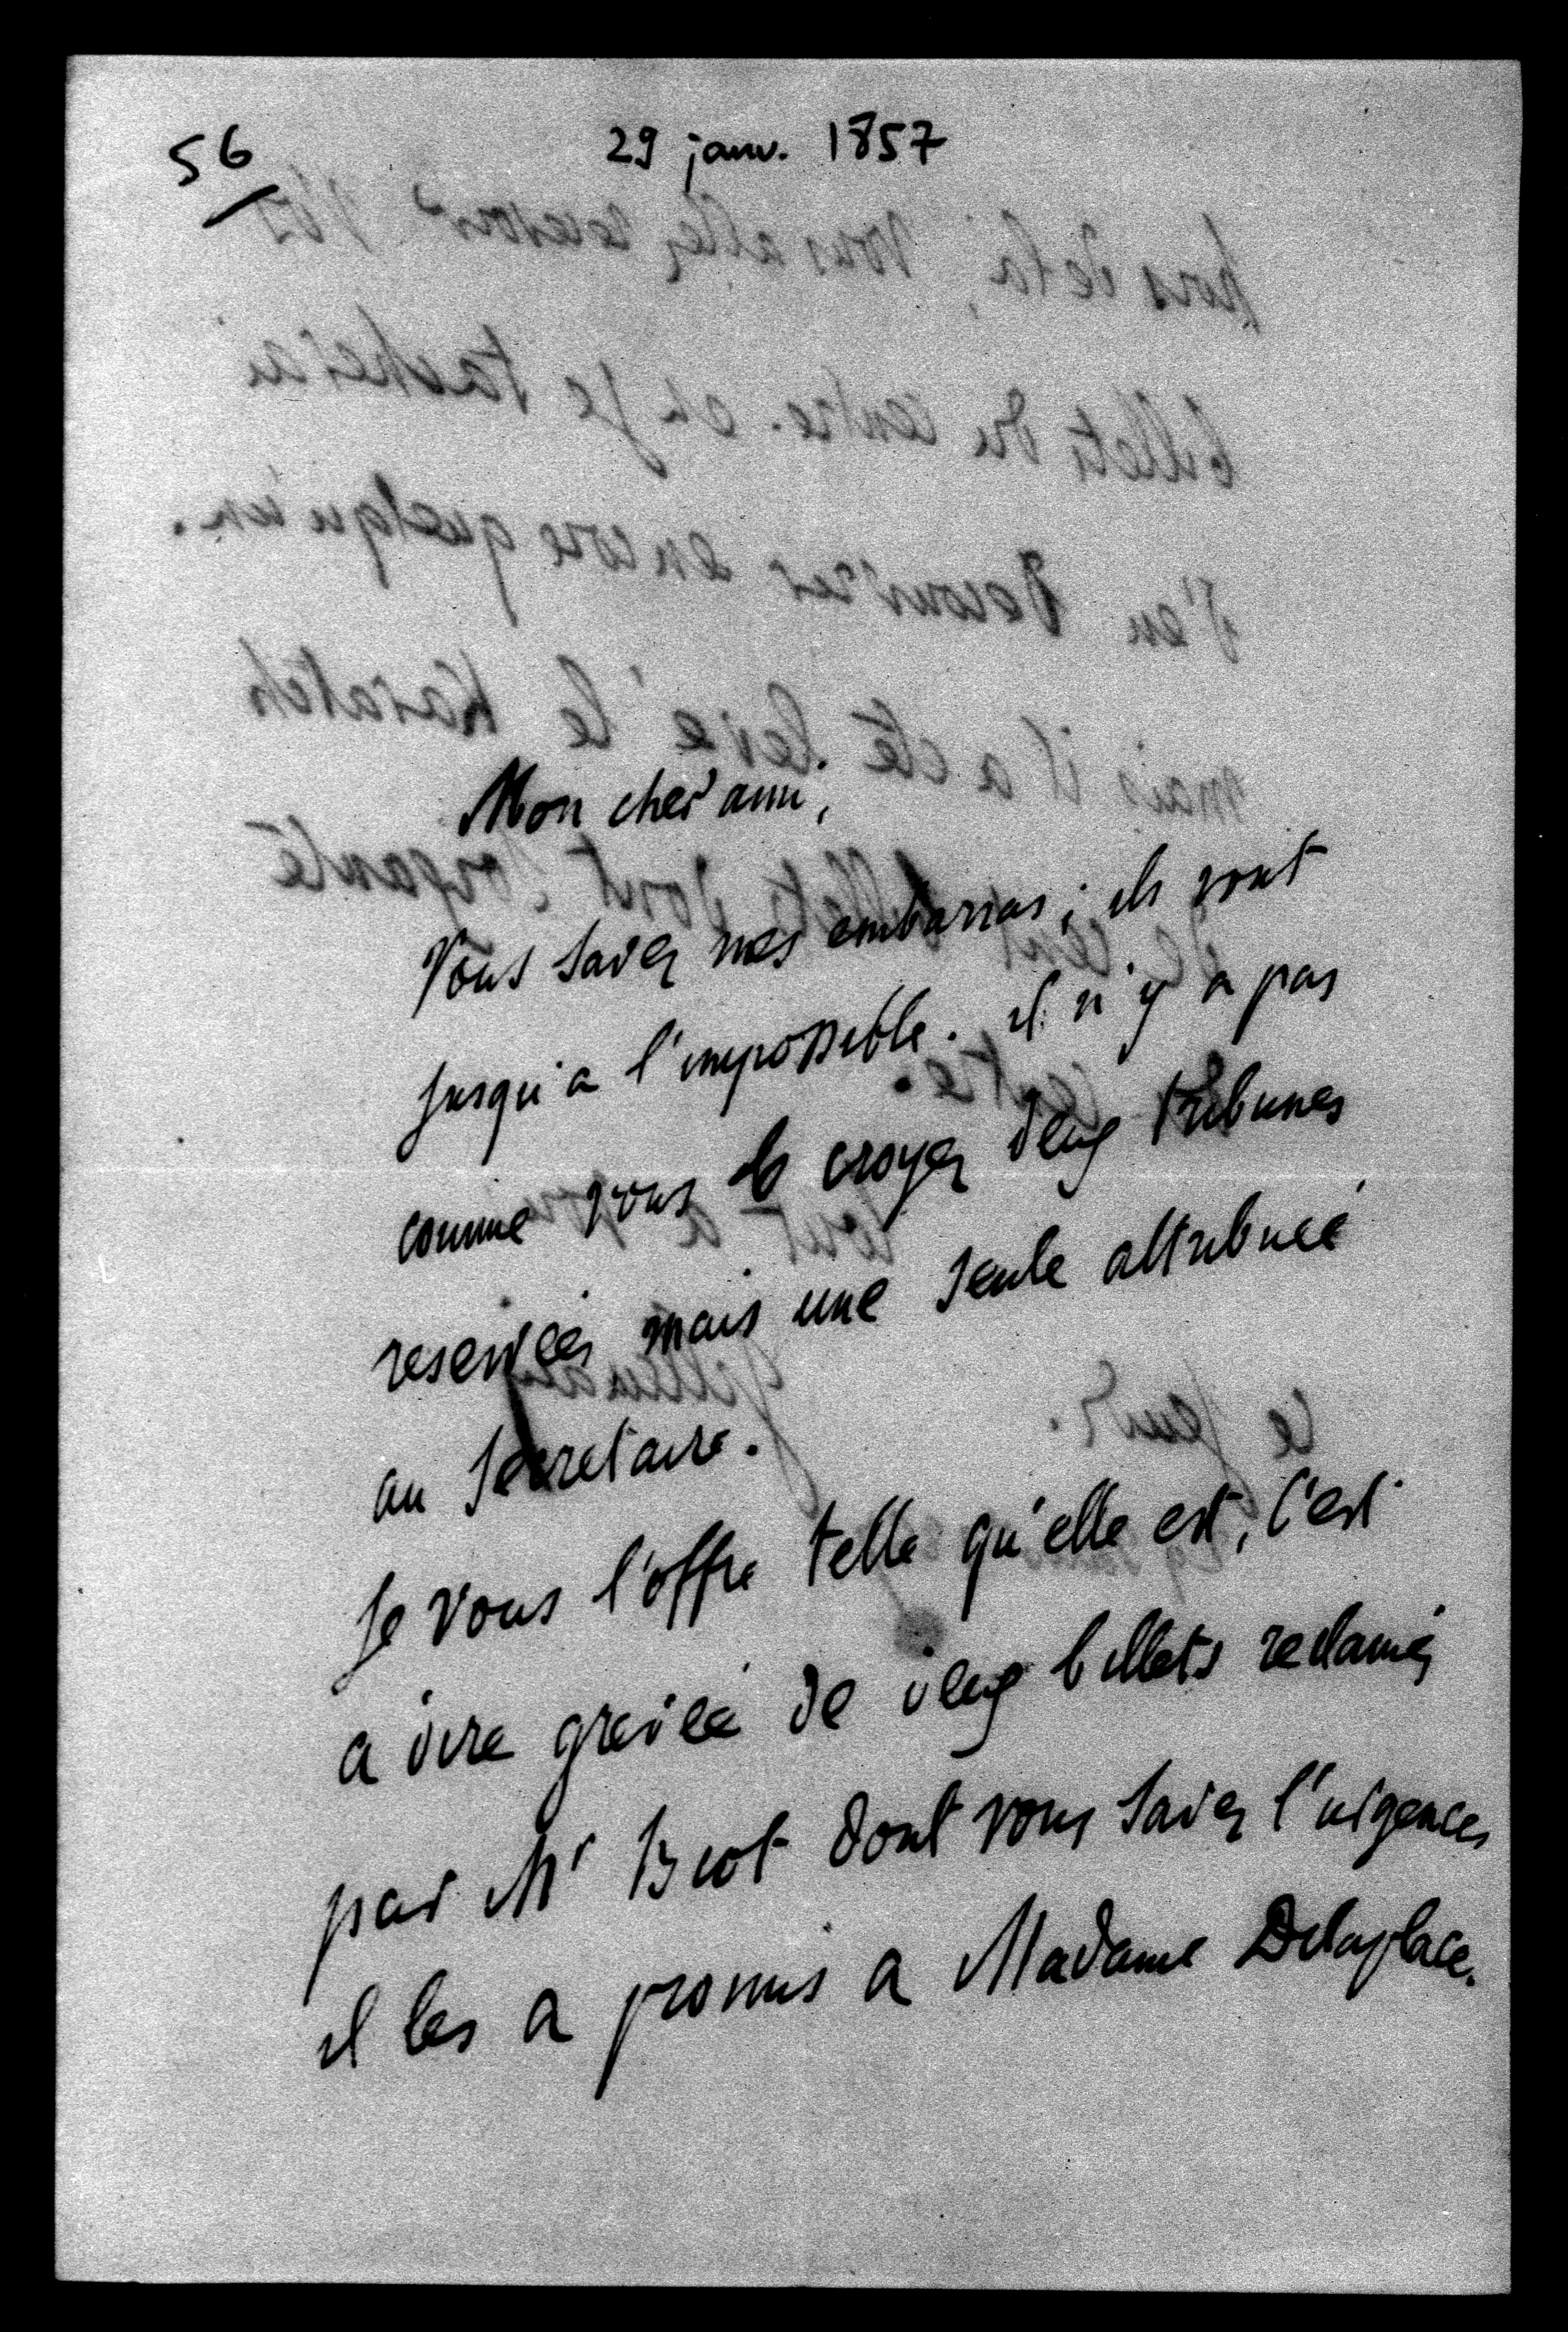 56
29 janv. 1857
Mon cher ami,
Vous savez mes embarras ; ils vont
jusqu'a l'impossible. il n'y a pas
comme vous le croyez deux tribunes
reservées mais une seule attribuée
au secretaire.
Je vous l'offre telle qu'elle est, c'est
a dire grevée de deux billets reclamés
par Mr Biot dont vous savez
il les a promis a Madame Delaplace.